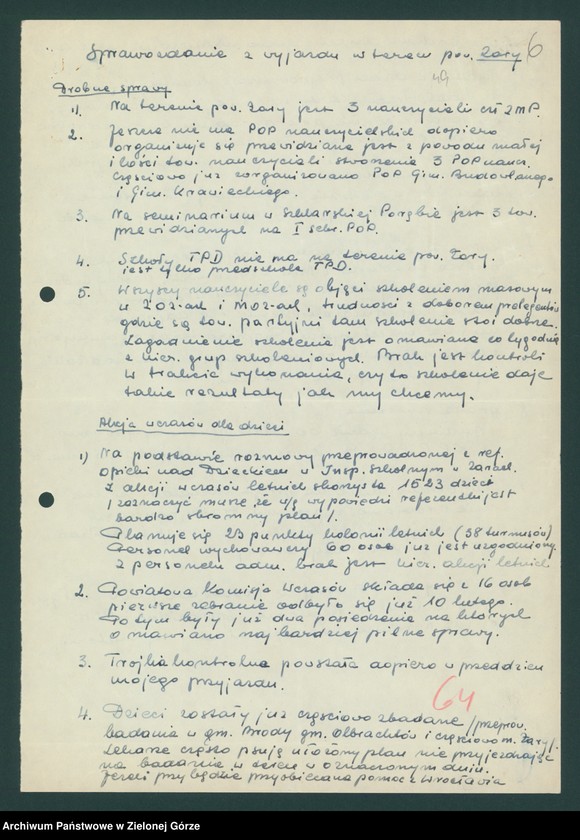 Sprawozdanie z wyjazdu w teren pow. Żary 6
49
Drobne sprawy
1). Na terenie pow. Żary jest 3 nauczycieli czł ZMP.
2. Jeszcze nie ma POP nauczycielskich dopiero
organizuje się przewidziane jest z powodu małej
ilości tow. nauczycieli stworzenie 3 POP naucz.
Częściowo już zorganizowano POP Gim. Budowlanego
i Gim. Krawieckiego.
3. Na seminarium w Szklarskiej Porębie jest 3 tow.
przewidzianych na I sekr. POP.
4. Szkoły TPD nie ma na terenie pow. Żary.
jest tylko przedszkole TPD.
5. Wszyscy nauczyciele są objęci szkoleniem masowym
w ZOZ-ach i MOZ-ach, trudności z doborem prelegentów
gdzie są tow. partyjni tam szkolenie stoi dobrze.
Zagadnienie szkolenia jest omawiane co tygodnia
z kier. grup szkoleniowych. Brak jest kontroli
w trakcie wykonania, czy to szkolenie daje
takie rezultaty jak my chcemy.
Akcja wczasów dla dzieci
1) Na podstawie rozmowy przeprowadzonej z ref.
opieki nad Dzieckiem w Insp. Szkolnym w Żarach.
Z akcji wczasów letnich skorzysta 1523 dzieci
/zaznaczyć muszę, że w/g wypowiedzi referentki jest
bardzo skromny plan/.
Planuje się 23 punkty kolonii letnich (38 turnusów)
Personel wychowawczy 60 osób już jest uzgodniony.
Z personelu adm. brak jest kier. akcji letnich
2. Powiatowa Komisja Wczasów składa się z 16 osób
pierwsze zebranie odbyło się już 10 lutego.
Po tym były już dwa posiedzenia na których
omawiano najbardziej pilne sprawy.
3. Trójka kontrolna powstała dopiero w przeddzień
mojego przyjazdu.
64
4. Dzieci zostały już częściowo zbadane /przeprow.
badania w gm. Brody gm. Olbrachtów i częściowo m. Żary/.
Lekarze często psują ułożony plan nie przyjeżdżając
na badania w teren w oznaczonym dniu.
Jeżeli przybędzie przyobiecana pomoc z Wrocławia
Archiwum Państwowe w Zielonej Górze